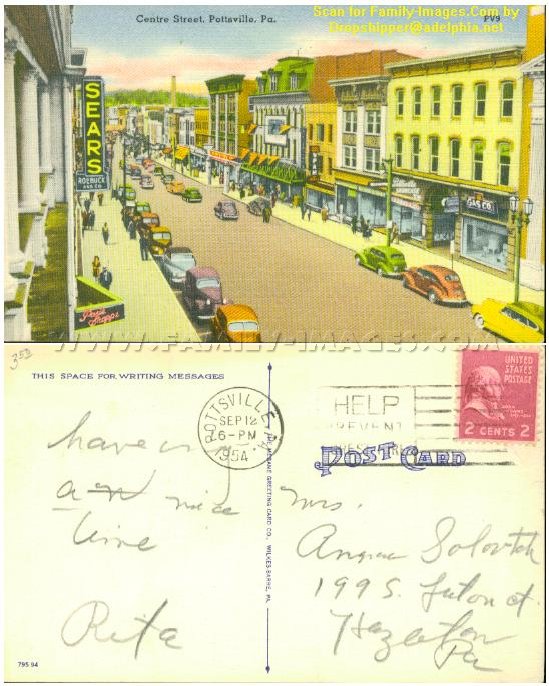 Scan for Family-Images.Com by
Dropshipper@adelphia.net
Centre Street, Pottsville, Pa.
PV9
SEARS
ROEBUCK
AND CO.
GAS CO.
WWW.FAMILY-IMAGES.COM
THIS SPACE FOR WRITING MESSAGES
POTTSVILLE
SEP 12
6-PM
1954
HELP
PREVENT
UNITED
STATES
POSTAGE
2 CENTS 2
POST CARD
have
a nice
time
Rita
Mrs.
199 S.
Hazleton
Pa
WILKES-BARRE, PA.
795 94